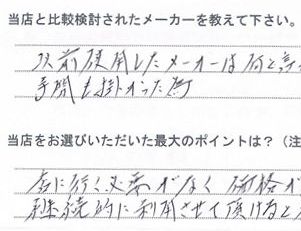 当店と比較検討されたメーカーを教えて下さい。
以前使用したメーカーは何と言
手間も掛かった為
当店をお選びいただいた最大のポイントは？（注
店に行く必要がなく 価格が
継続的に利用させて頂けると